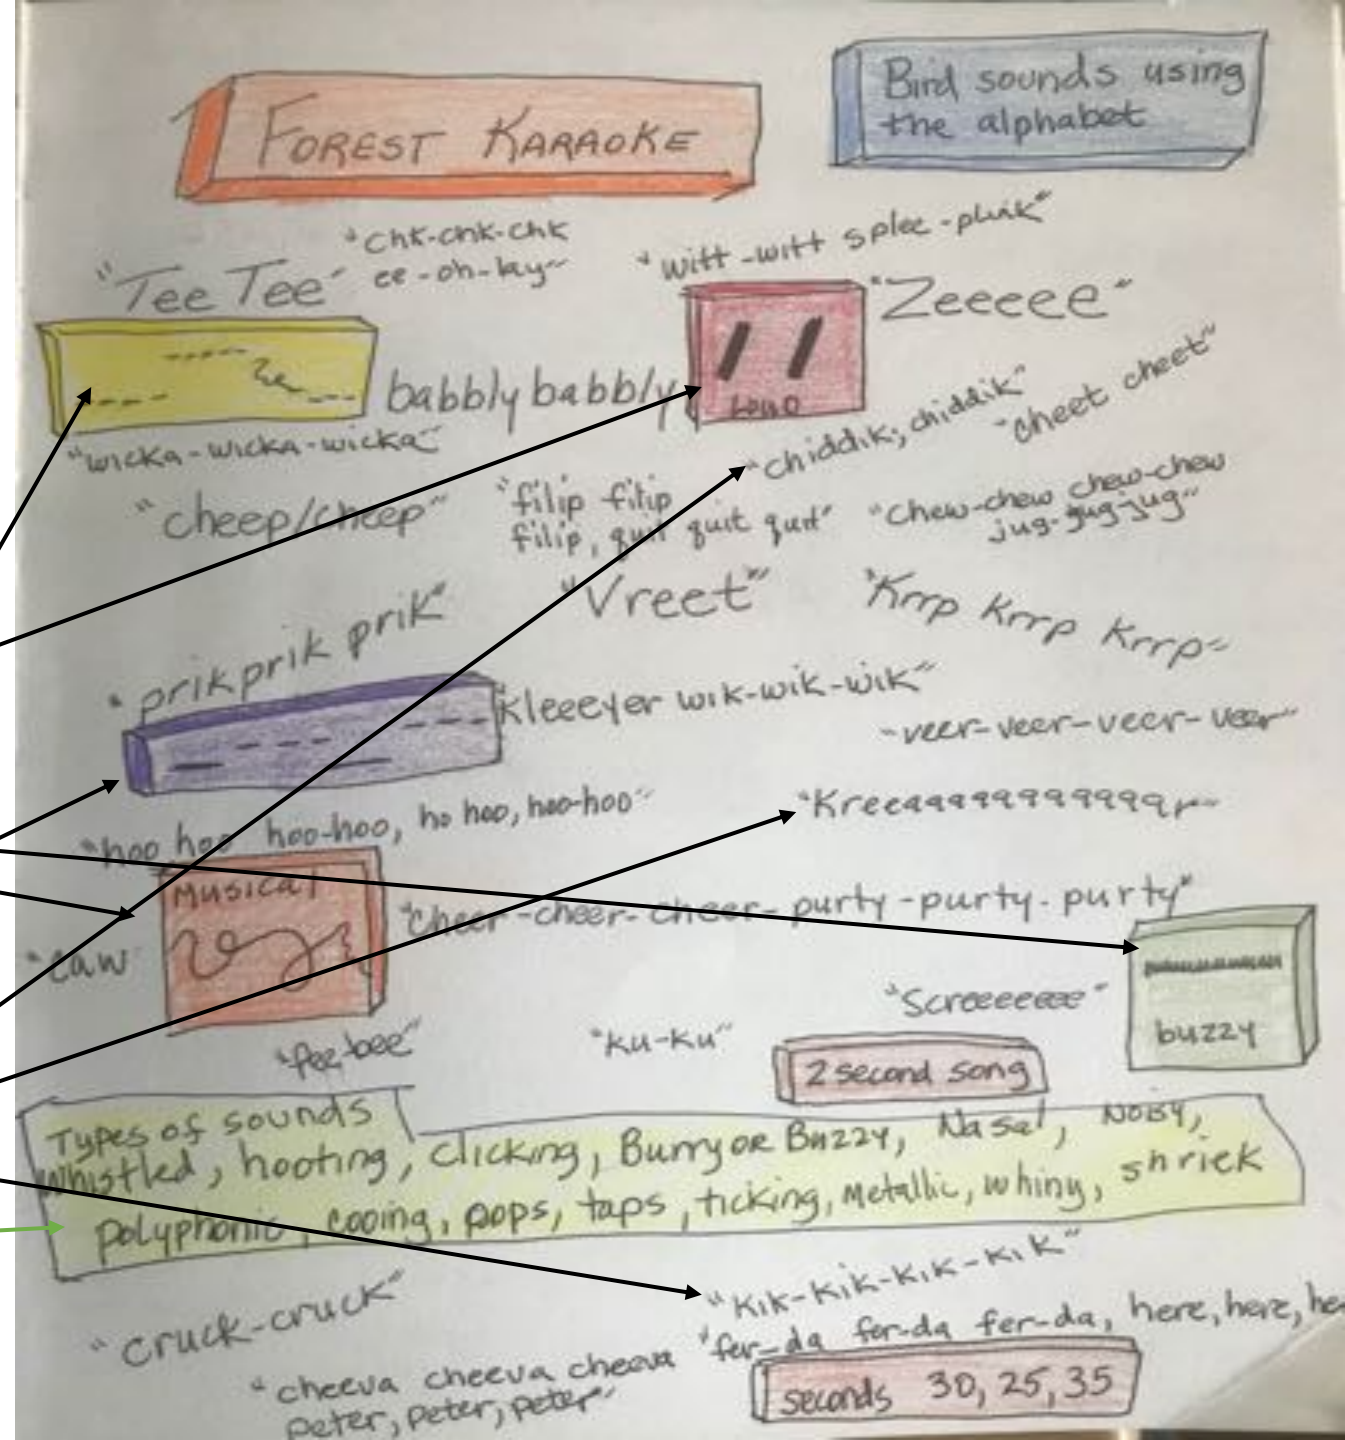 FOREST KARAOKE
Bird sounds using
the alphabet
"Tee Tee"
"chk-chk-chk
ee-oh-lay"
"witt-witt splee-plink"
"Zeeeee"
babbly babbly
Loud
"wicka-wicka-wicka"
"chiddik, chiddik"
"cheet cheet"
"cheep/cheep"
"filip filip
filip, quit quit quit"
"chew-chew chew-chew
jug-jug-jug"
"prik prik prik"
"Vreet"
"Krrp Krrp Krrp"
kleeeyer wik-wik-wik"
"veer-veer-veer-veer"
"hoo hoo hoo-hoo, ho hoo, hoo-hoo"
Musical
"caw"
"cheer-cheer-cheer-purty-purty-purty"
"Screeeeeee"
buzzy
"fee-bee"
"ku-ku"
2 second song
Types of sounds
Whistled, hooting, clicking, Burry or Buzzy, Nasal, Noisy,
Polyphonic, cooing, pops, taps, ticking, Metallic, whiny, shriek
"cruck-cruck"
"kik-kik-kik-kik"
"fer-da fer-da fer-da, here, here, he
"cheeva cheeva cheeva
peter, peter, peter"
seconds 30, 25, 35